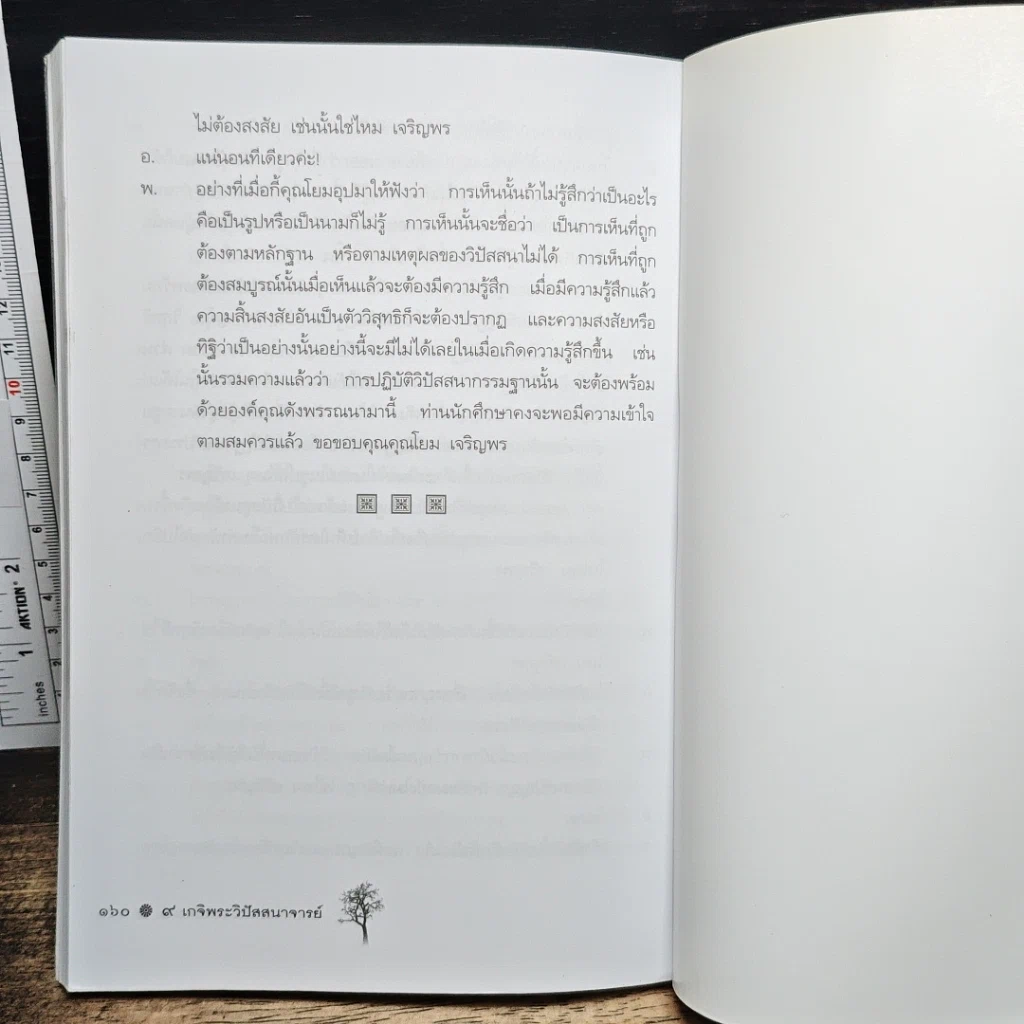 ไม่ต้องสงสัย เช่นนั้นใช่ไหม เจริญพร
อ. แน่นอนทีเดียวค่ะ!
พ. อย่างที่เมื่อกี้คุณโยมอุปมาให้ฟังว่า การเห็นนั้นถ้าไม่รู้สึกว่าเป็นอะไร
คือเป็นรูปหรือเป็นนามก็ไม่รู้ การเห็นนั้นจะชื่อว่า เป็นการเห็นที่ถูก
ต้องตามหลักฐาน หรือตามเหตุผลของวิปัสสนาไม่ได้ การเห็นที่ถูก
ต้องสมบูรณ์นั้นเมื่อเห็นแล้วจะต้องมีความรู้สึก เมื่อมีความรู้สึกแล้ว
ความสิ้นสงสัยอันเป็นตัววิสุทธิก็จะต้องปรากฏ และความสงสัยหรือ
ทิฐิว่าเป็นอย่างนั้นอย่างนี้จะมีไม่ได้เลยในเมื่อเกิดความรู้สึกขึ้น เช่น
นั้นรวมความแล้วว่า การปฏิบัติวิปัสสนากรรมฐานนั้น จะต้องพร้อม
ด้วยองค์คุณดังพรรณนามานี้ ท่านนักศึกษาคงจะพอมีความเข้าใจ
ตามสมควรแล้ว ขอขอบคุณคุณโยม เจริญพร
๑๖๐ ๙ เกจิพระวิปัสสนาจารย์
12
11
10
9
8
7
6
5
4
3
2
1
2
AKTION®
inches